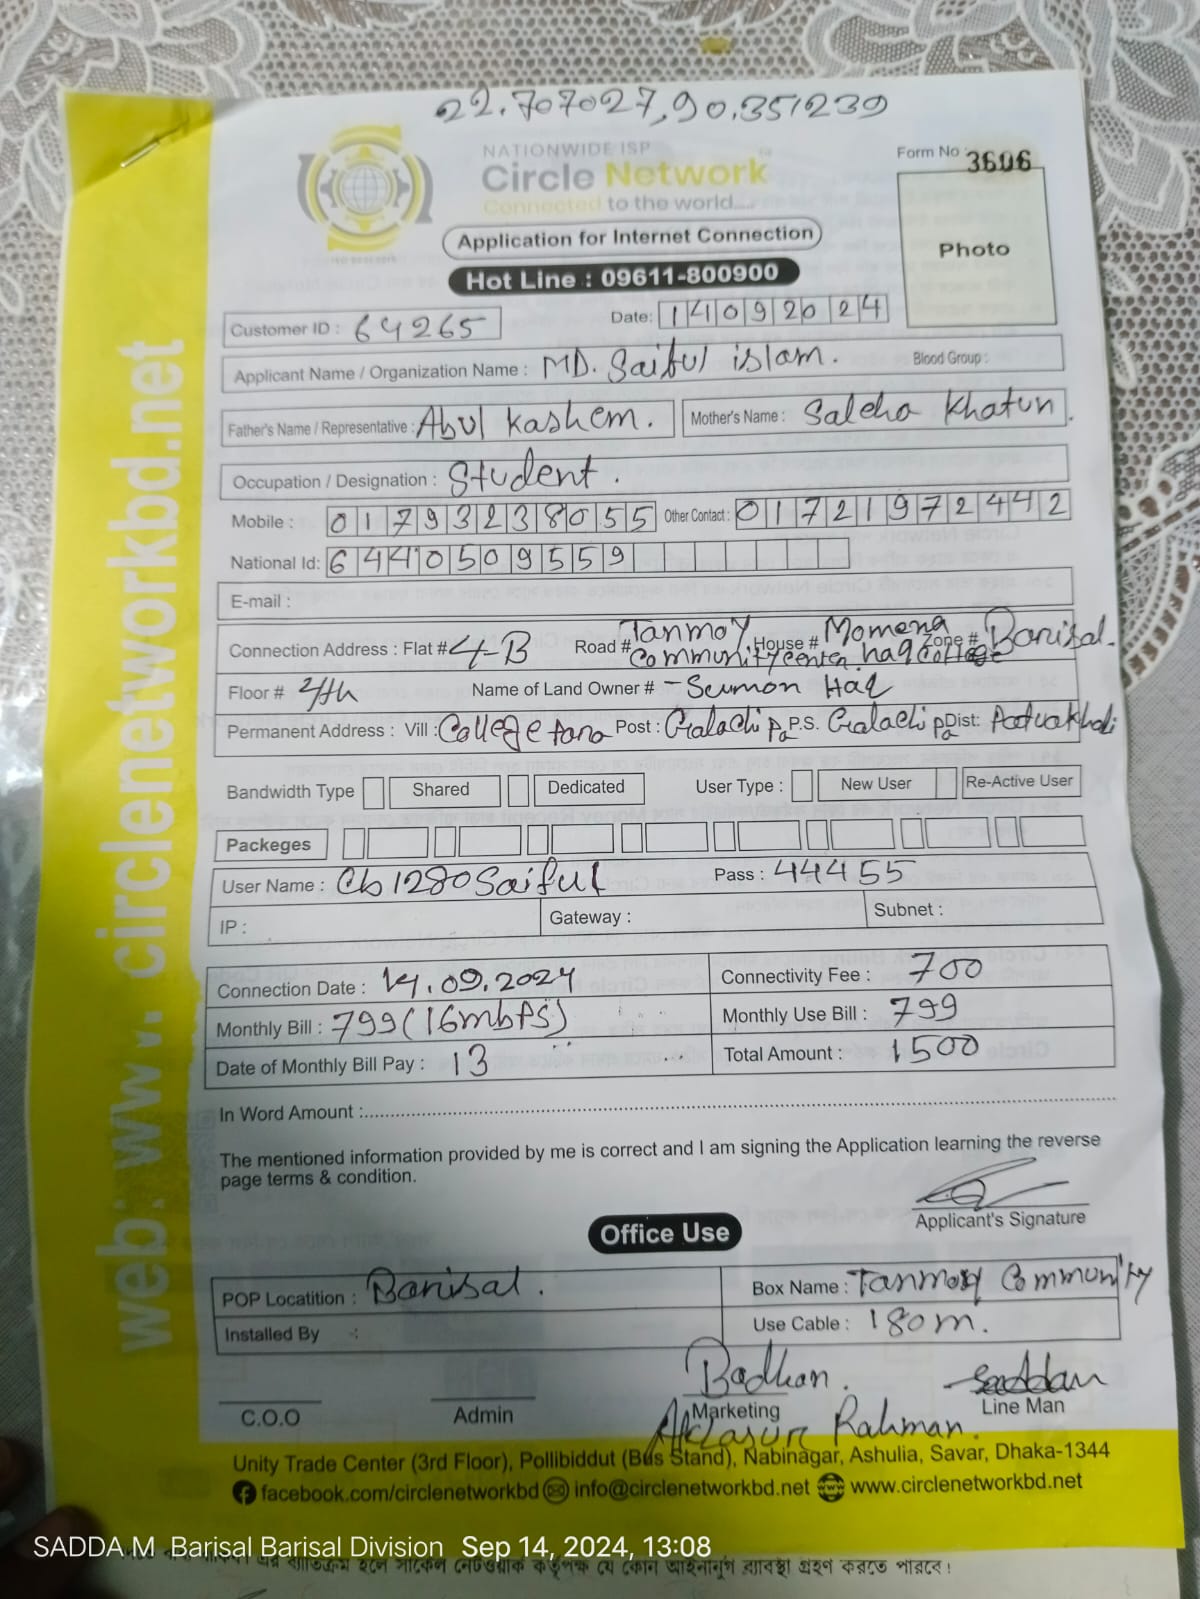 22.707027,90.351239
NATIONWIDE ISP
Circle Network
Connected to the world....
Form No : 3606
Photo
Application for Internet Connection
Hot Line : 09611-800900
Customer ID : 64265
Date: 14092024
Applicant Name / Organization Name : MD. Saiful islam. Blood Group :
Father's Name / Representative : Abul Kashem. Mother's Name : Saleha Khatun.
Occupation / Designation : Student.
Mobile : 01793238055 Other Contact : 01721972442
National Id: 6440509559
E-mail :
Connection Address : Flat # 4-B Road # Tanmoy Community center House # Momena haq college Zone # Barisal.
Floor # 4th Name of Land Owner # - Sumon Haq
Permanent Address : Vill : College para Post : Galachipa P.S. Galachipa Dist: Patuakhali
Bandwidth Type Shared Dedicated User Type : New User Re-Active User
Packeges
User Name : Cb1280Saiful Pass : 44455
IP : Gateway : Subnet :
Connection Date : 14.09.2024 Connectivity Fee : 700
Monthly Bill : 799(16mbps) Monthly Use Bill : 799
Date of Monthly Bill Pay : 13 Total Amount : 1500
In Word Amount :
The mentioned information provided by me is correct and I am signing the Application learning the reverse
page terms & condition.
Applicant's Signature
Office Use
POP Locatition : Barisal. Box Name : Tanmoy Community
Installed By : Use Cable : 180m.
Badhan. Saddam
C.O.O Admin Marketing Line Man
Rahman.
Unity Trade Center (3rd Floor), Pollibiddut (Bus Stand), Nabinagar, Ashulia, Savar, Dhaka-1344
facebook.com/circlenetworkbd info@circlenetworkbd.net www.circlenetworkbd.net
web: www.circlenetworkbd.net
SADDA.M Barisal Barisal Division Sep 14, 2024, 13:08
এর ব্যতিক্রম হলে সার্কেল নেটওয়ার্ক কর্তৃপক্ষ যে কোন আইনানুগ ব্যবস্থা গ্রহণ করতে পারবে।